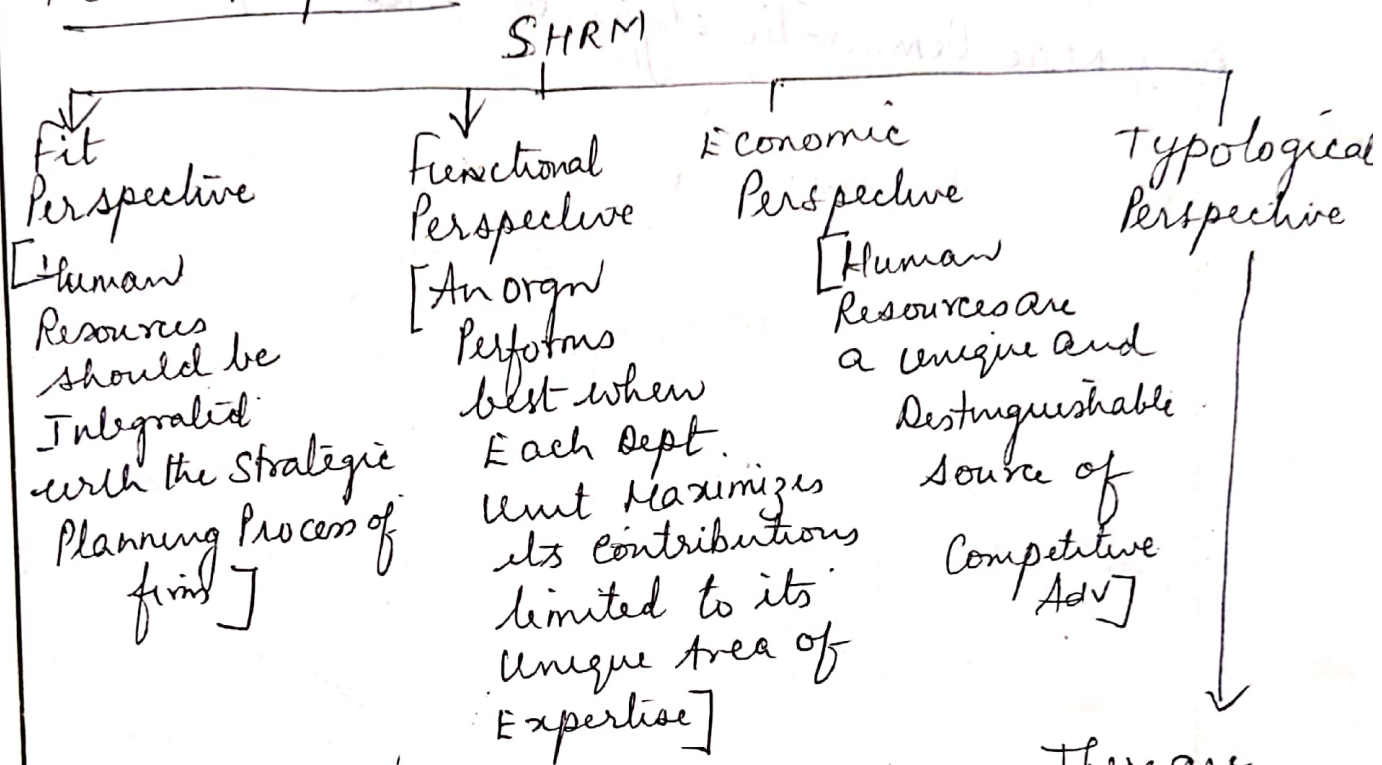 SHRM
Fit
Perspective
[Human
Resources
should be
Integrated
with the Strategic
Planning Process of
firm]
Functional
Perspective
[An orgn
Performs
best when
Each Dept.
Unit Maximizes
its contributions
limited to its
Unique Area of
Expertise]
Economic
Perspective
[Human
Resources are
a unique and
Distinguishable
source of
Competitive
Adv]
Typological
Perspective
There are